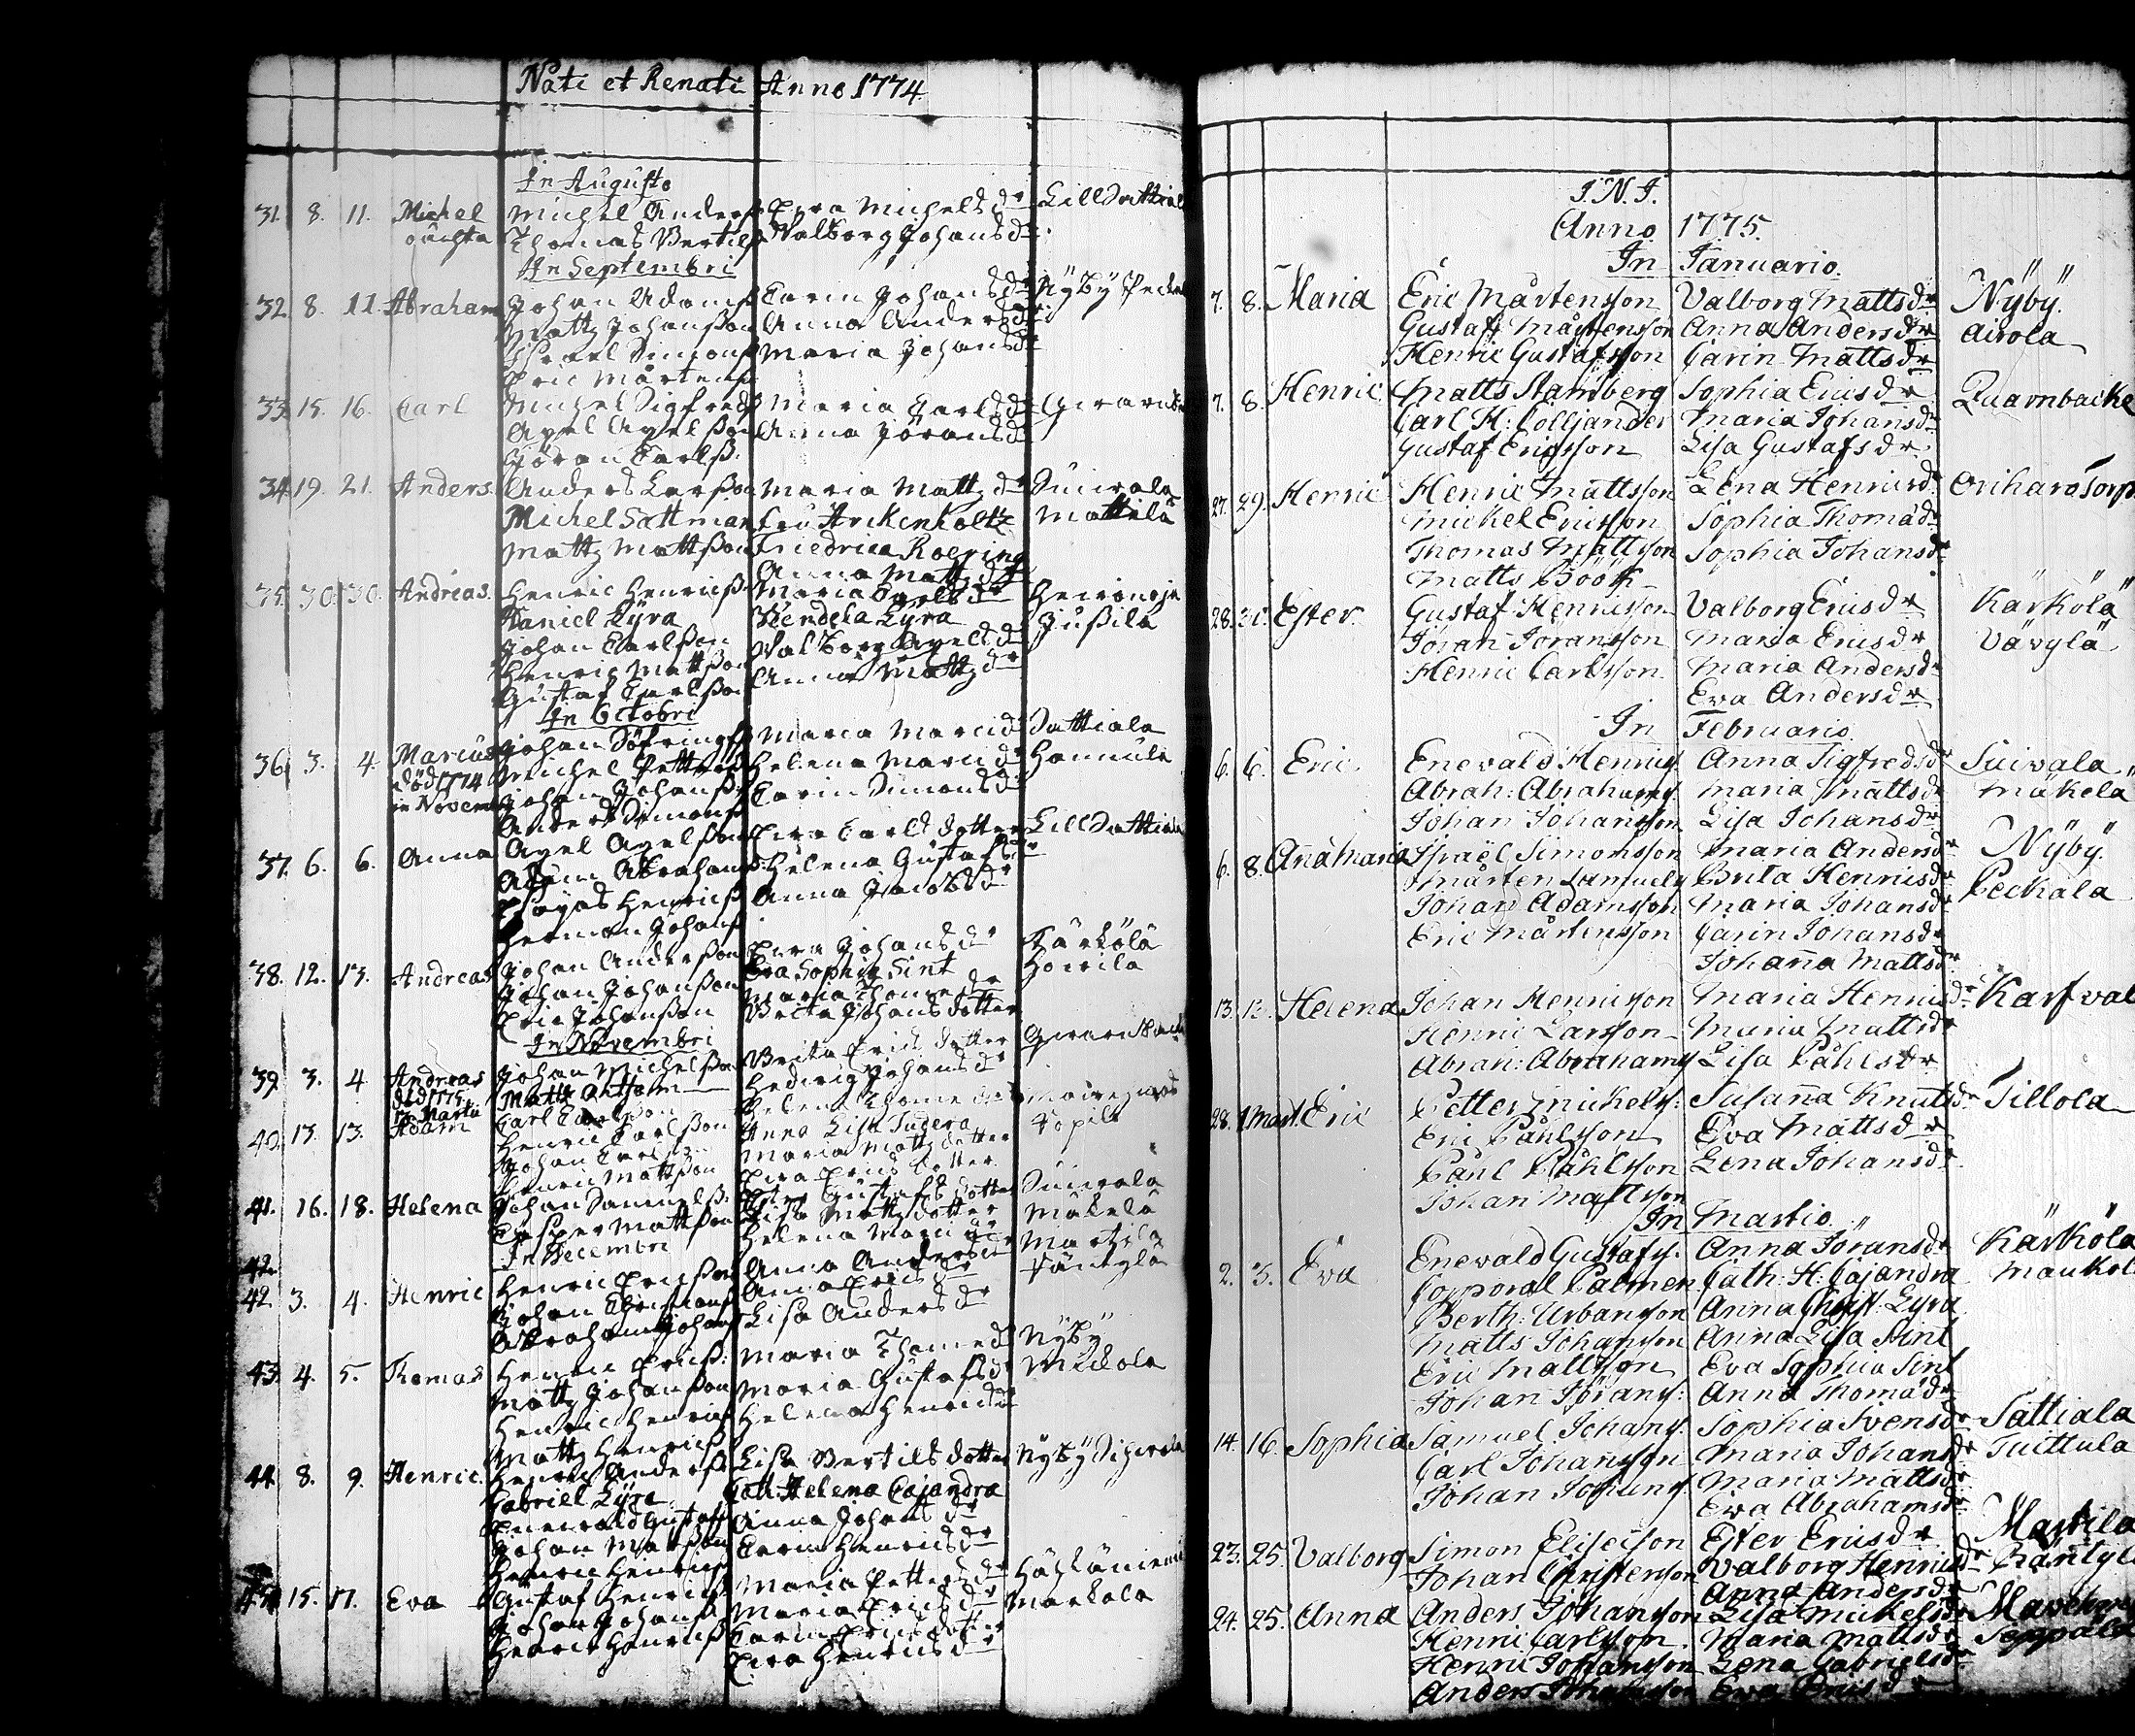 Nati et Renati Anno 1774.
In Augusto
31. 8. 11. Michel Michel Anderss Eva Michelsdr Lill Sattiala
oächta Thomas Bertilss Valborg Johansdr
In Septembri
32. 8. 11. Abraham Johan Adamss Carin Johansdr Nÿbÿ Peckala
Matts Johansson Anna Andersdr
Israel Simonss Maria Johansdr
Eric Mårtenss
33. 15. 16. Carl Michel Sigfredss Maria Carlsdr
Axel Axelsson Anna Jöransdr
Göran Carlss.
34. 19. 21. Anders. Anders Larsson Maria Mattsdr Suivala
Michel Sattman Fru Arckenholtz Mattila
Matts Mattsson Friedrica Roering
Anna Mattsdr
35. 30. 30. Andreas. Henric Henricss. Maria Carlsdr Heivonoja
Daniel Lÿra Wendela Lÿra Jussila
Johan Carlsson Valborg Axelsdr
Henric Mattsson Anna Mattsdr
Gustaf Carlsson
In Octobri
36. 3. 4. Marcus Johan Söfringss Maria Marcidr Sattiala
död 1774 Michel Petterss Helena Marcidr Hannula
in Novemb Johan Johanss. Carin Simonsdr
Anders Simonss
37. 6. 6. Anna Axel Axelsson Eva Carls dotter Lill Sattiala
Adam Abrahamss Helena Gustafsdr
Esaias Henricss Anna Jacobsdr
Herman Johanss
38. 12. 13. Andreas Johan Andersson Eva Johansdr Kärkölä
Johan Johansson Eva Sophia Sint Hovila
Eric Johansson Maria Thomedr
Brita Johans dotter
In Novembri
39. 3. 4 Andreas Johan Michelsson Brita Erics dotter
död 1775 Matts Hedvig Johansdr
in Martii Carl Carlsson Helena Thome
40. 13. 13. Adam Henric Carlsson Anna Lisa Tudera
Johan Carlsson Maria Matts dotter
Henric Mattsson Eva Erics dotter
41. 16. 18. Helena Johan Samuelss. Gustafs dotter Suivala
Casper Mattsson Lisa Matts dotter Mäkelä
In Decembri Helena Marcidr
42. Martila
42. 3. 4. Henric Henric Ericsson Anna Andersdr Räntylä
Johan Christianss Anna Ericsdr
Abraham Johanss Lisa Andersdr
43. 4. 5. Thomas Henric Ericss. Maria Thomedr Nÿbÿ
Matts Johansson Maria Gustafsdr Mickola
Henric Henricss Helena Henricsdr
Matts Henricss
44. 8. 9. Henric. Henric Anderss Lisa Bertils dotter Nÿbÿ
Gabriel Lÿra Cath: Helena Cajandra
Enewald Gustafss Anna Johansdr
Johan Matsson Carin Henricsdr
Henric Henricss
45. 15. 17. Eva Gustaf Henricss Maria Pettersdr
Johan Johanss. Maria Ericsdr Markola
Henric Henricss Carin Erics dotter
Eva Henricsdr
J. N. J.
Anno 1775.
In Januario.
7. 8. Maria Eric Mårtensson Valborg Mattsdr Nÿbÿ.
Gustaff Mårtensson Anna Andersdr Airola
Henric Gustafsson Carin Mattsdr
7. 8. Henric. Matts Stamberg Sophia Ericsdr Quarnbacke
Carl H: Colljander Maria Johansdr
Gustaf Ericsson Lisa Gustafsdr.
27. 29. Henric Henric Mattsson Lena Henricsdr Oriharo Torp
Mickel Ericsson Sophia Thomædr
Thomas Mattsson Sophia Johansdr
Matts Böök
28. 30. Ester. Gustaf Henricsson Valborg Ericsdr Kärkölä
Johan Joransson Maria Ericsdr Vävylä
Henric Carlsson Maria Andersdr
Eva Andersdr
In Februario.
6. 6. Eric Enevald Henricss. Anna Sigfredsdr Suivala
Abrah: Abrahamss. Maria Mattsdr Mäkelä
Johan Johansson Lisa Johansdr
6. 8. Aña Maria Israël Simonsson Maria Andersdr Nÿbÿ.
Mårten Samuelss Brita Henricsdr Peckala
Johan Adamsson Maria Johansdr
Eric Mårtensson Carin Johansdr
Johaña Mattsdr
13. 13. Helena Johan Henricsson Maria Henricsdr Karfvala
Henric Larsson Maria Mattsdr
Abrah: Abrahamss Lisa Påhlsdr
28. 1 Mart. Eric Petter Mickelss: Susaña Knutsdr Tillola
Eric Påulsson Eva Mattsdr
Paul Påhlsson Lena Johansdr
Johan Mattsson
In Martio.
2. 3. Eva Enevald Gustafss: Anna Jöransdr Kärkölä
Corporal Palmen Cath: H: Cajandra Maukola
Berth: Urbansson Anna Christ: Lyra
Matts Johansson Anna Lisa Sint
Eric Mattsson Eva Sophia Sint
Johan Jöranss: Anna Thomædr
14. 16. Sophia Samuel Johanss. Sophia Svensdr Sattiala
Carl Johansson Maria Johansdr Tuittula
Johan Maria Mattsdr
Eva Abrahamsdr
23. 25. Valborg Simon Eliseison Ester Ericsdr Martila
Johan Christersson Valborg Henricsdr Räntylä
Anna Andersdr
24. 25. Anna Anders Johansson Lisa Mickelsdr
Henric Carlsson. Maria Mattsdr Seppälä
Henric Johansson Lena Gabrielsdr
Anders Johansson Eva Ericsdr